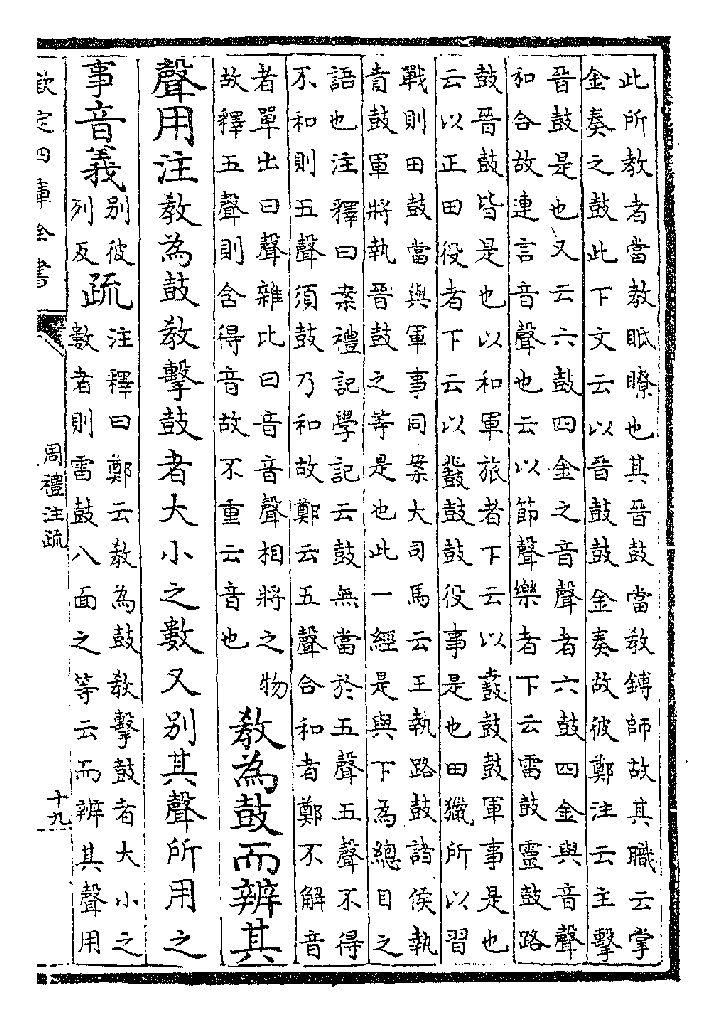 此所教者當教眡瞭也其晉鼓當教鎛師故其職云掌
金奏之鼓此下文云以晉鼓鼓金奏故彼鄭注云主擊
晉鼓是也又云六鼓四金之音聲者六鼓四金與音聲
和合故連言音聲也云以節聲樂者下云雷鼓靈鼓路
鼓晉鼓皆是也以和軍旅者下云以鼖鼓鼓軍事是也
云以正田役者下云以鼛鼓鼓役事是也田獵所以習
戰則田鼓當與軍事同案大司馬云王執路鼓諸侯執
賁鼓軍將執晉鼓之等是也此一經是與下為總目之
語也注釋曰案禮記學記云鼓無當於五聲五聲不得
不和則五聲須鼓乃和故鄭云五聲合和者鄭不解音
者單出曰聲雜比曰音音聲相將之物
故釋五聲則含得音故不重云音也
教為鼓而辨其
聲用注教為鼓教擊鼓者大小之數又別其聲所用之
事音義
別彼
列反
疏
注釋曰鄭云教為鼓教擊鼓者大小之
數者則雷鼓八面之等云而辨其聲用
欽定四庫全書
周禮注疏
十九